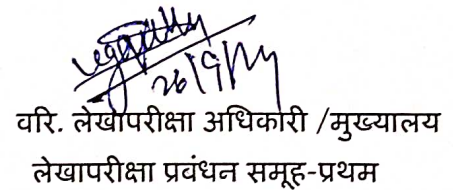 26/9/24
वरि. लेखापरीक्षा अधिकारी /मुख्यालय
लेखापरीक्षा प्रवंधन समूह-प्रथम